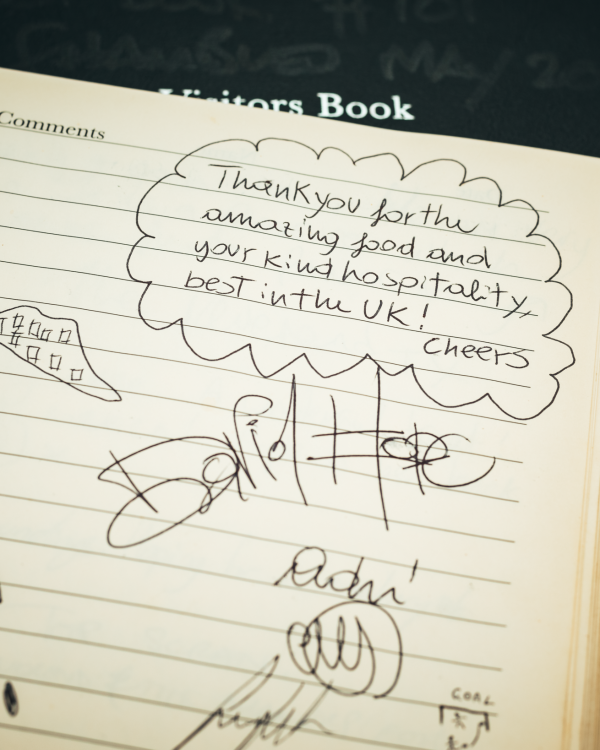 Visitors Book
Comments
Thankyou for the
amazing food and
your kind hospitality,
best in the UK!
Cheers
David
adri
GOAL